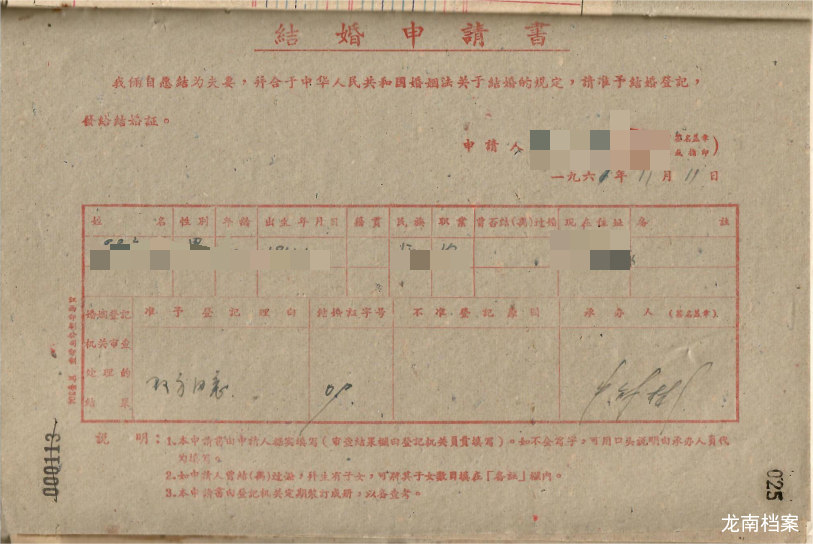 結婚申請書
我倆自愿結为夫妻，符合于中华人民共和国婚姻法关于結婚的規定，請准予結婚登記，
發給結婚証。
申請人
(簽名盖章或指印)
一九六 年 11 月 11 日
姓名 性別 年齡 出生年月日 籍貫 民族 职業 曾否結(离)过婚 現在住址 备註
婚姻登記机关审查处理的結果
准予登記理由 結婚証字号 不准登記原因 承办人 (簽名盖章)
双方同意.
説明：1.本申請書由申請人據实填写（审查結果欄由登記机关負責填写）。如不会写字，可用口头説明由承办人員代
为填写。
2.如申請人曾結(离)过婚，幷生有子女，可將其子女數目填在「备註」欄內。
3.本申請書由登記机关定期裝訂成册，以备查考。
000113
025
龙南档案